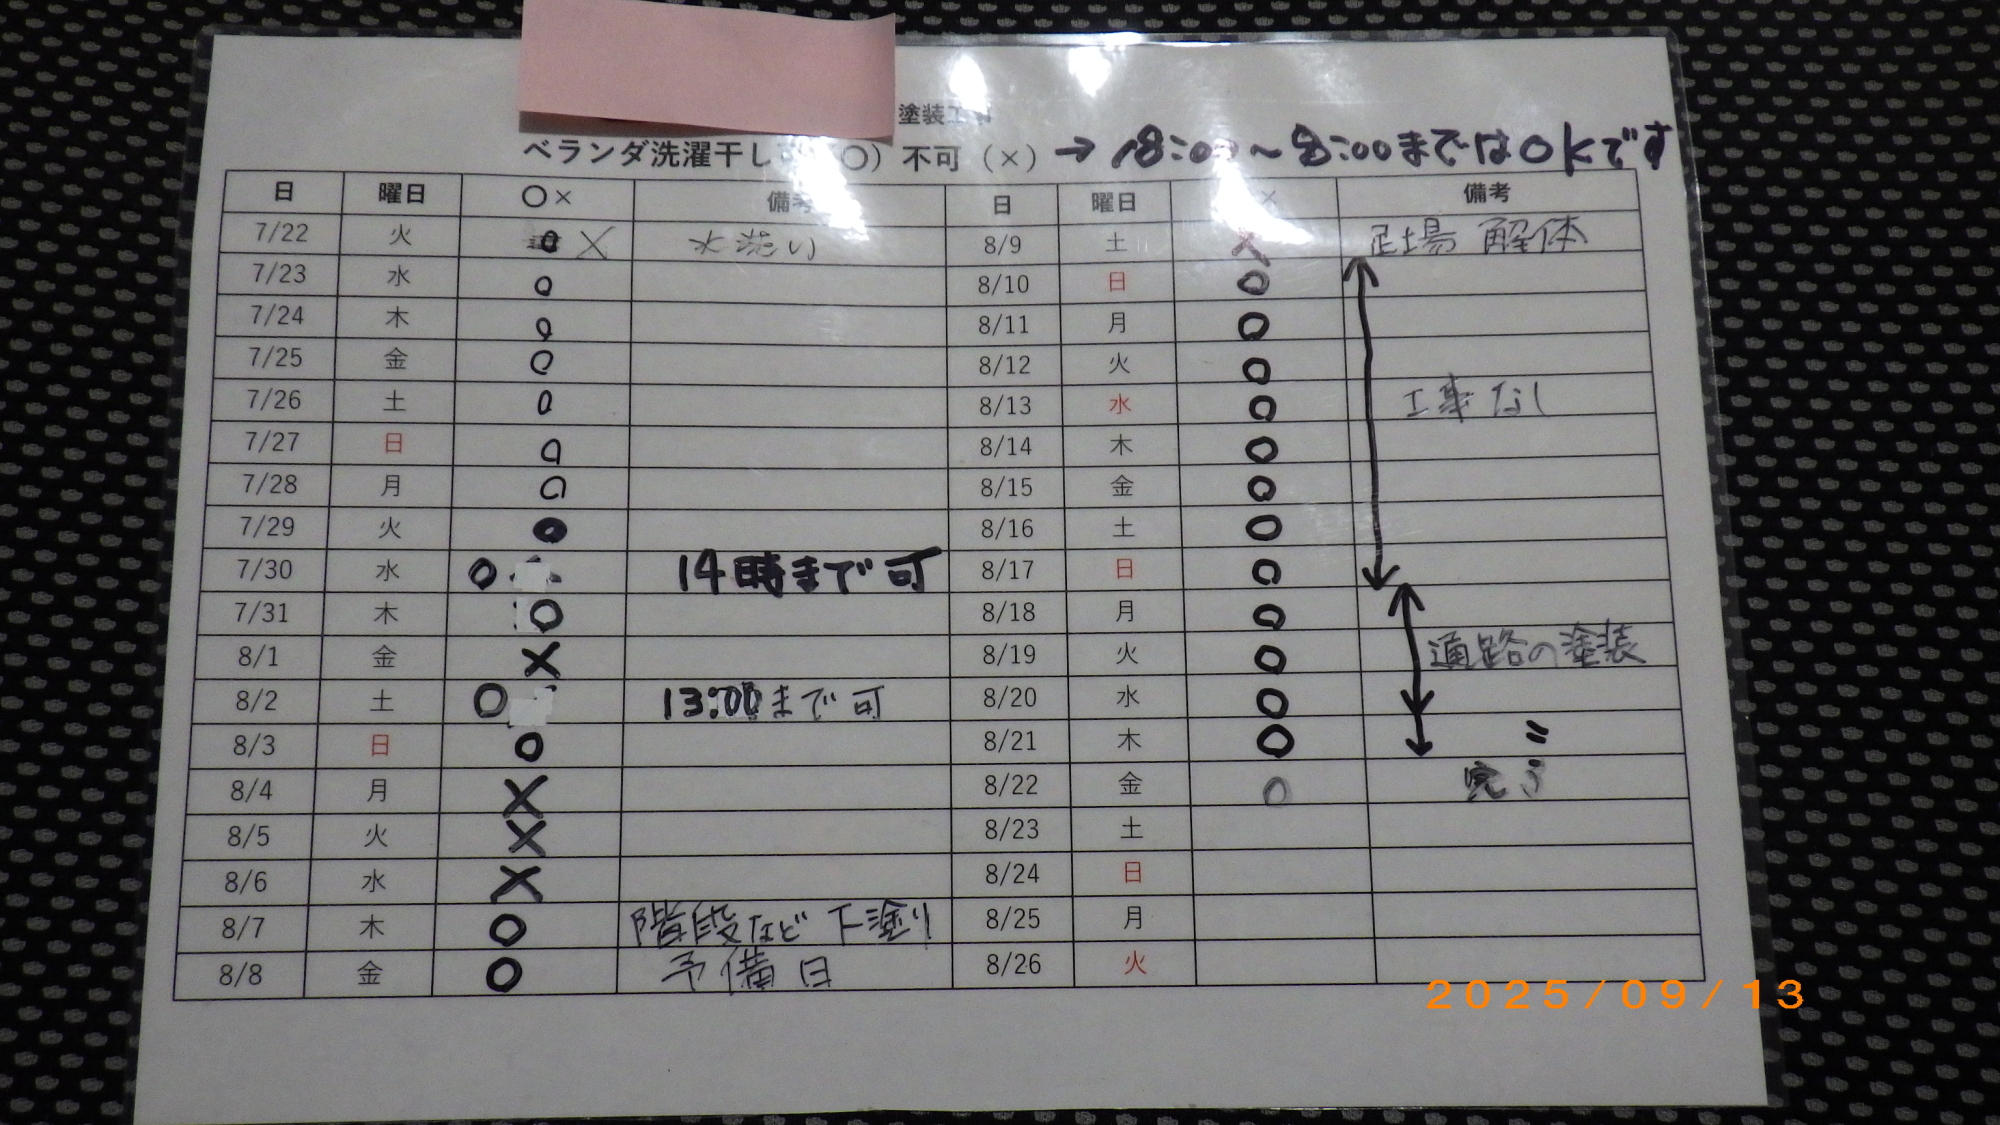 塗装工事
ベランダ洗濯干し 〇） 不可（×）→ 18:00～8:00まではOKです
日 曜日 〇× 備考 日 曜日 × 備考
7/22 火 × 水洗い 8/9 土 × 足場 解体
7/23 水 〇 8/10 日 〇
7/24 木 〇 8/11 月 〇
7/25 金 〇 8/12 火 〇
7/26 土 〇 8/13 水 〇 工事なし
7/27 日 〇 8/14 木 〇
7/28 月 〇 8/15 金 〇
7/29 火 ● 8/16 土 〇
7/30 水 〇 14時まで可 8/17 日 〇
7/31 木 〇 8/18 月 〇
8/1 金 × 8/19 火 〇 通路の塗装
8/2 土 〇 13:00まで可 8/20 水 〇
8/3 日 〇 8/21 木 〇 〃
8/4 月 × 8/22 金 〇 完了
8/5 火 × 8/23 土
8/6 水 × 8/24 日
8/7 木 〇 階段など 下塗り 8/25 月
8/8 金 〇 予備日 8/26 火
2025/09/13